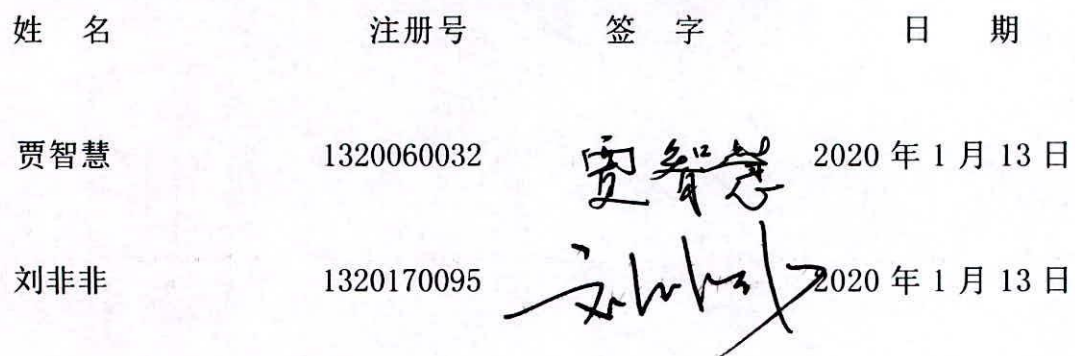 姓 名 注册号 签 字 日 期
贾智慧 1320060032 贾智慧 2020 年 1 月 13 日
刘非非 1320170095 2020 年 1 月 13 日